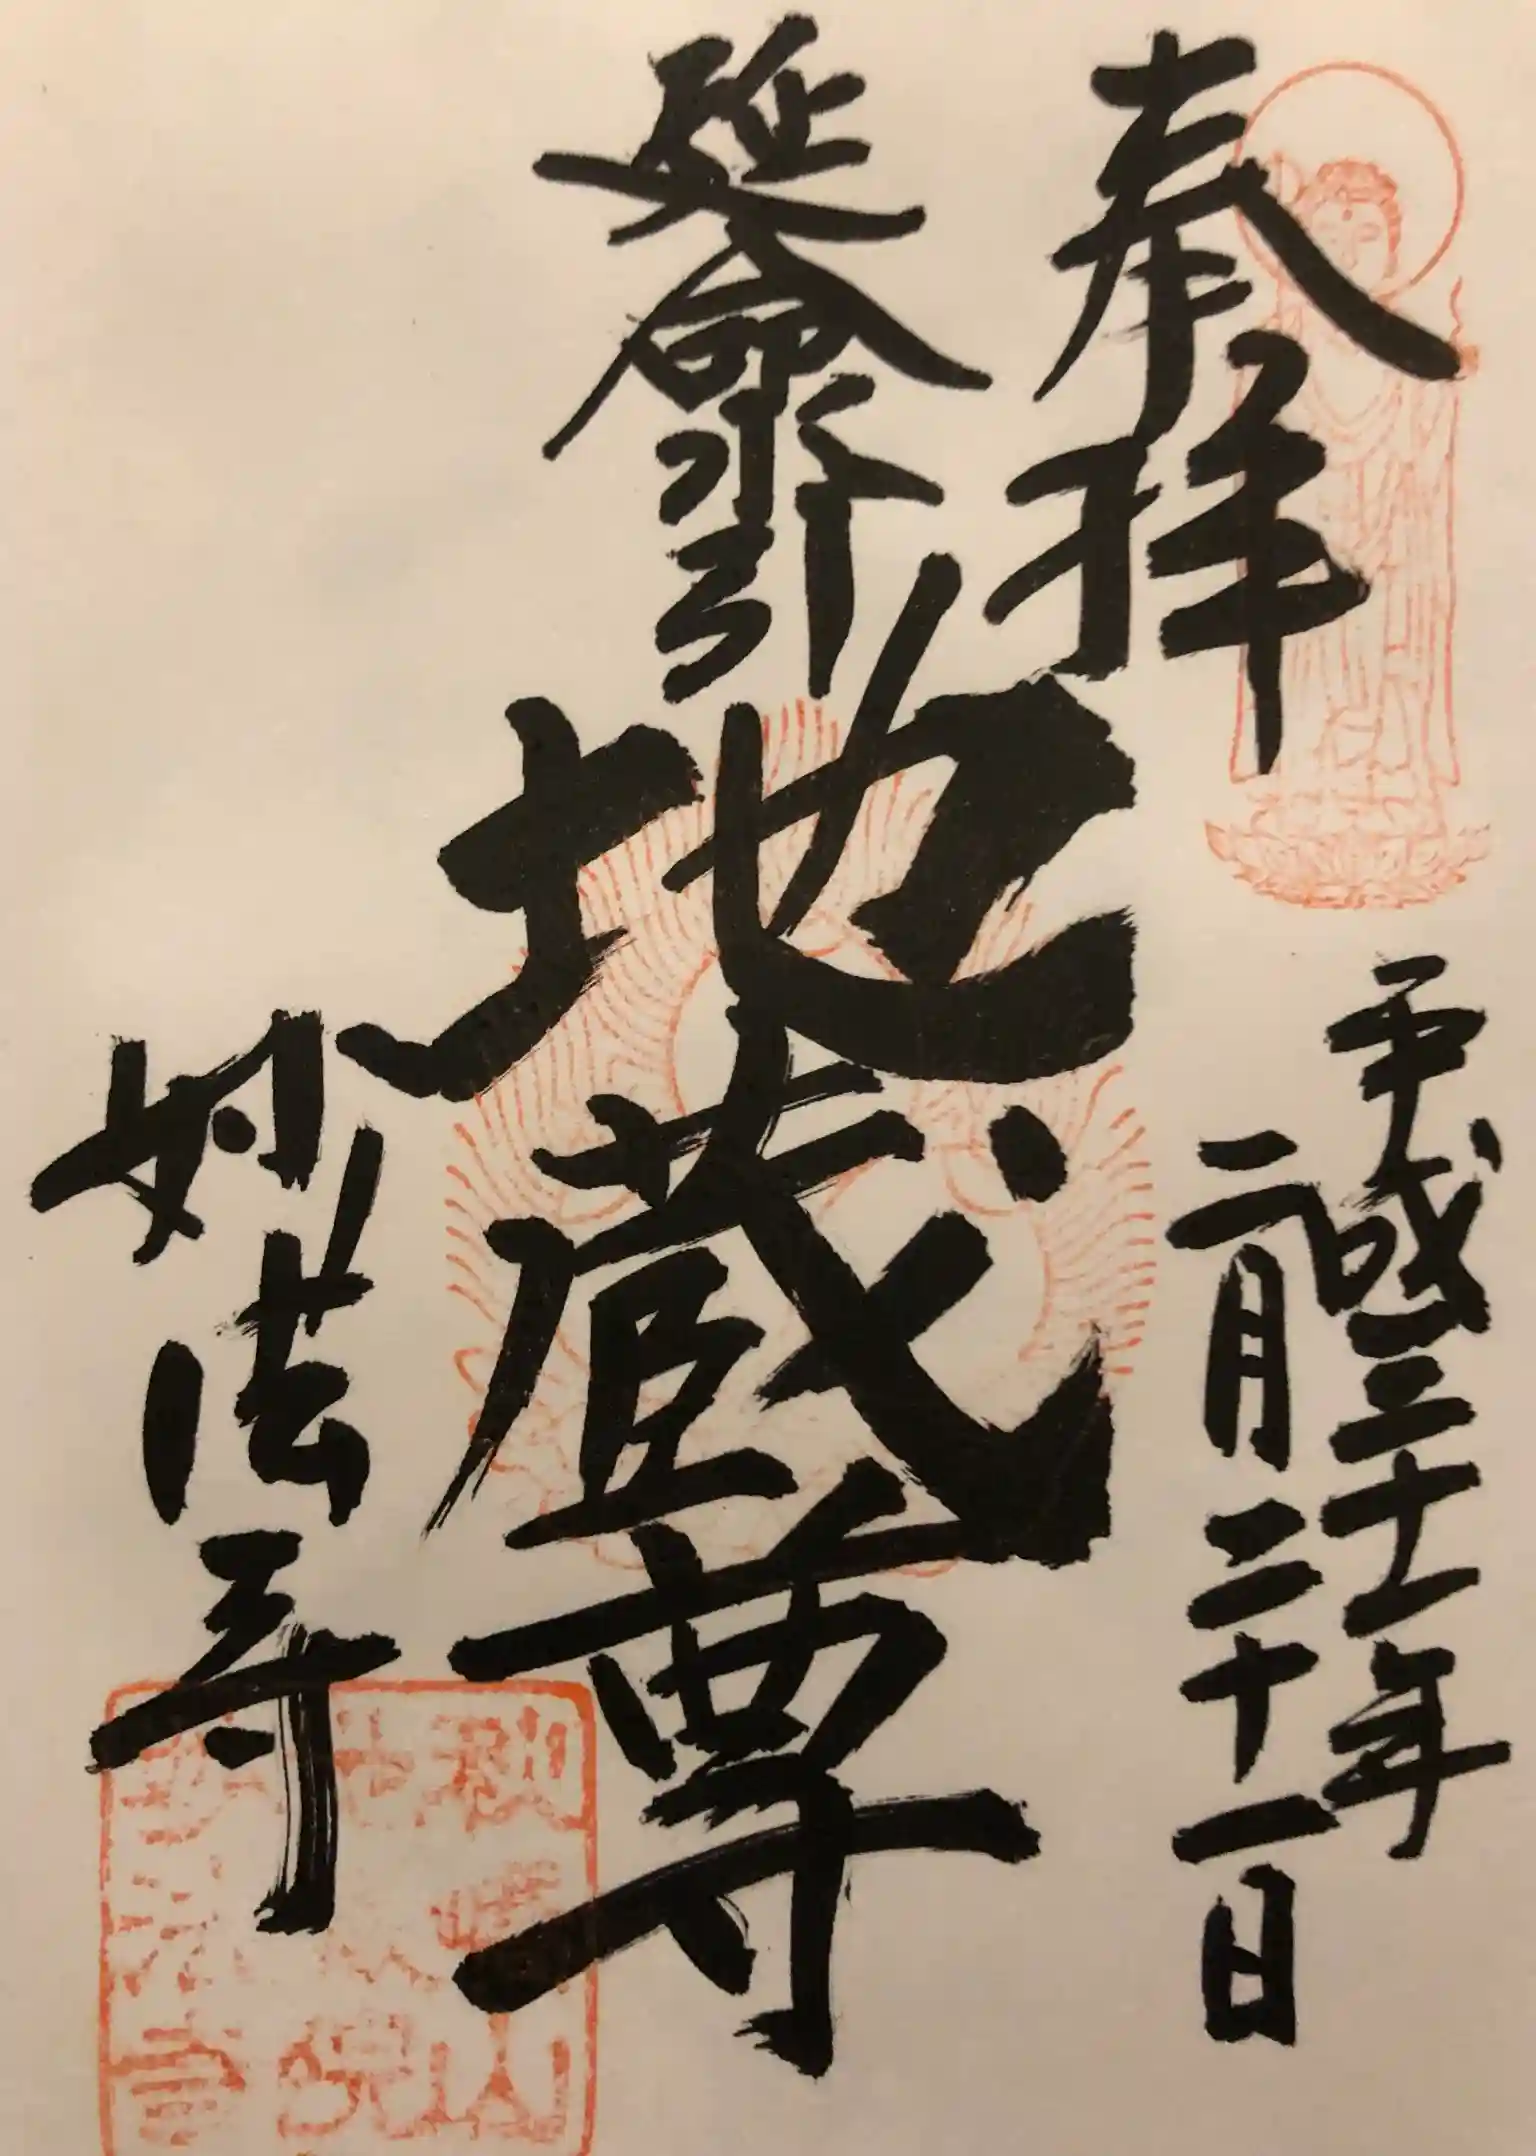 奉拝
平成三十一年
二月二十一日
延命水引
地蔵尊
妙法寺